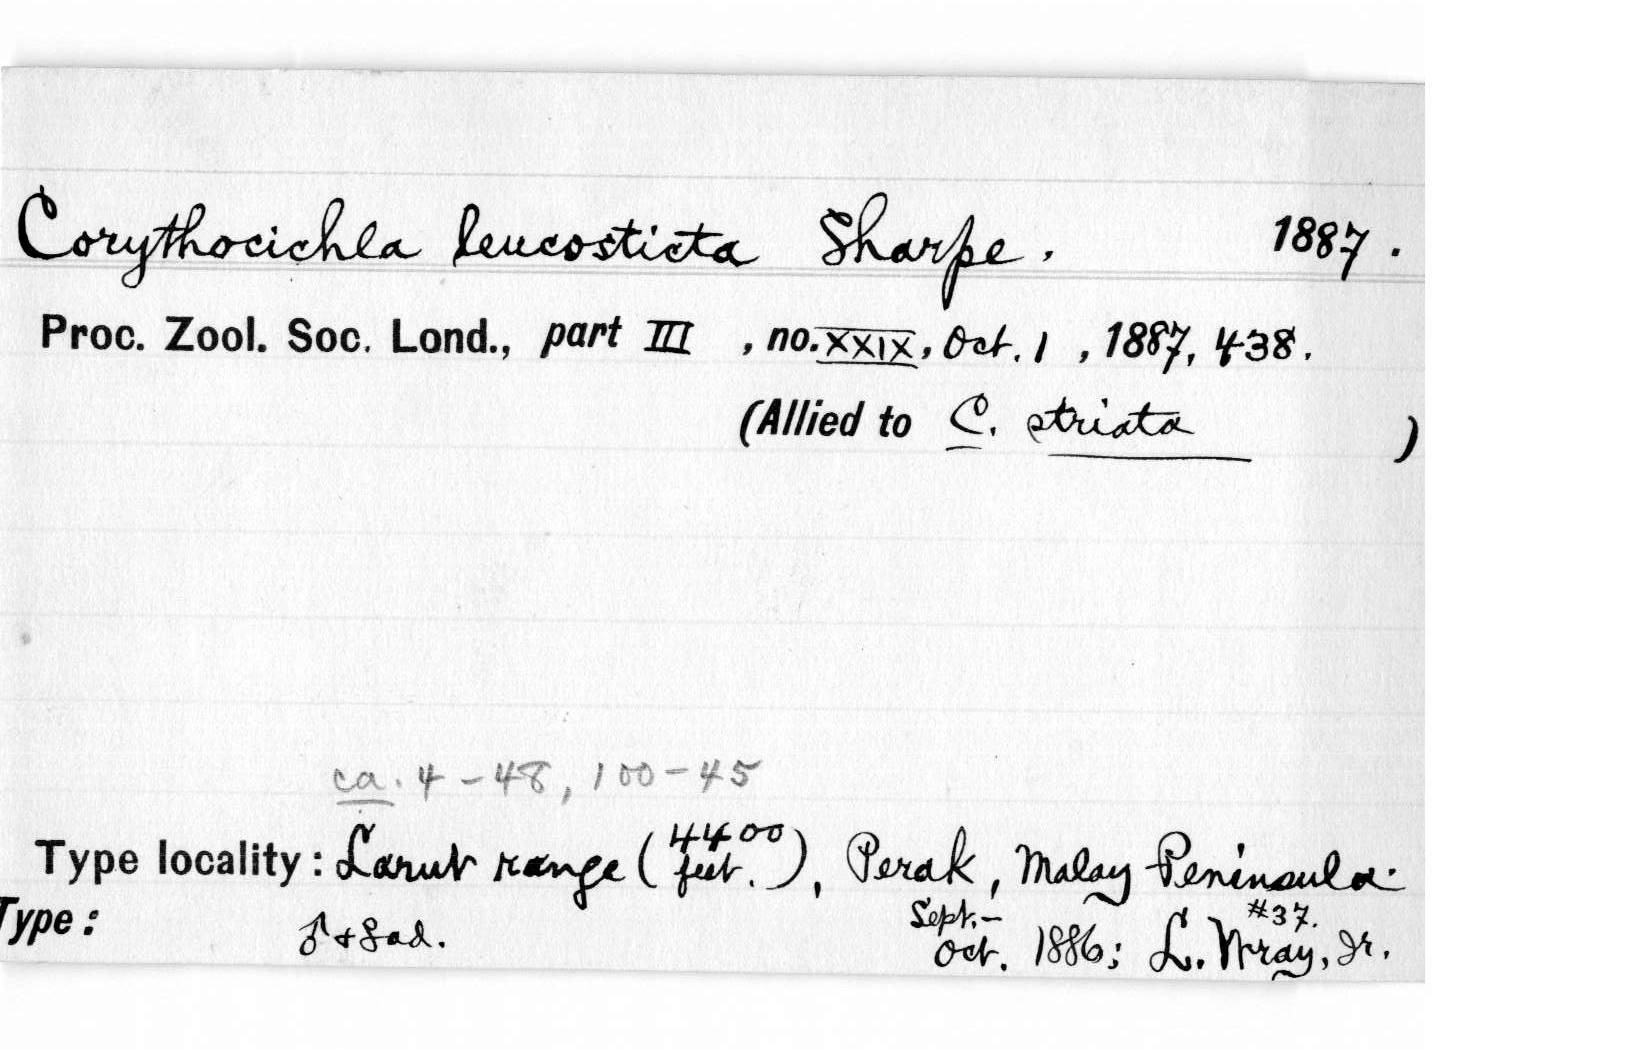 Corythocichla leucosticta Sharpe. 1887.
Proc. Zool. Soc. Lond., part III , no. XXIX, Oct. 1 , 1887, 438.
(Allied to C. striata )
ca. 4-48, 100-45
Type locality: Larut range (4400 feet.), Perak, Malay Peninsula.
Type: ♂ + ♀ ad. Sept.- Oct. 1886; #37. L. Wray, Jr.